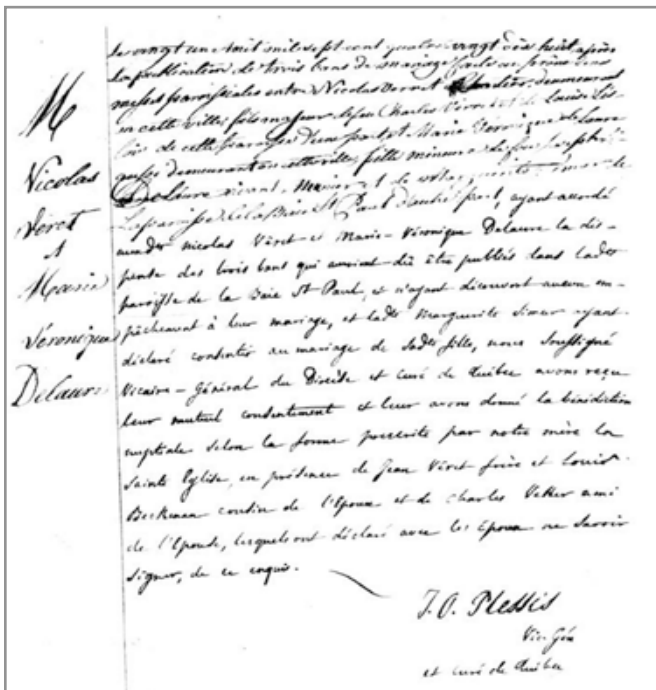 M
Nicolas
Veret
&
Marie
Véronique
Delaure
Le vingt un Aout mil sept cent quatre vingt dix huit après
La publication de trois bans de mariage faite au prône des
messes paroissiales entre Nicolas Verret demeurant
en cette ville, fils majeur de feu Charles Verret et de Louise
de cette paroisse d'une part, et Marie Véronique de Laure
aussi demeurant en cette ville, fille mineure de feu Joseph
De Laure vivant, et de Marguerite Simar de
La paroisse de la Baie St Paul d'autre part, ayant accordé
auxdts nicolas Véret et Marie-Véronique Delaure la dis-
pense des trois bans qui auroient dû être publiés dans ladte
paroisse de la Baie St Paul, et n'ayant découvert aucun em-
pêchement à leur mariage, et ladte Marguerite Simar ayant
déclaré consentir au mariage de sadte fille, nous Soussigné
Vicaire-Général du Diocèse et curé de Québec avons reçu
leur mutuel consentement et leur avons donné la bénédiction
nuptiale selon la forme prescrite par notre mère la
Sainte Eglise, en présence de Jean Véret frère et Louis
Beckman cousin de l'Epoux et de Charles Vetter ami
de l'Epouse, lesquels ont déclaré avec les Epoux ne Savoir
signer, de ce enquis.
J. O. Plessis
Vic. Gén
et curé de Québec